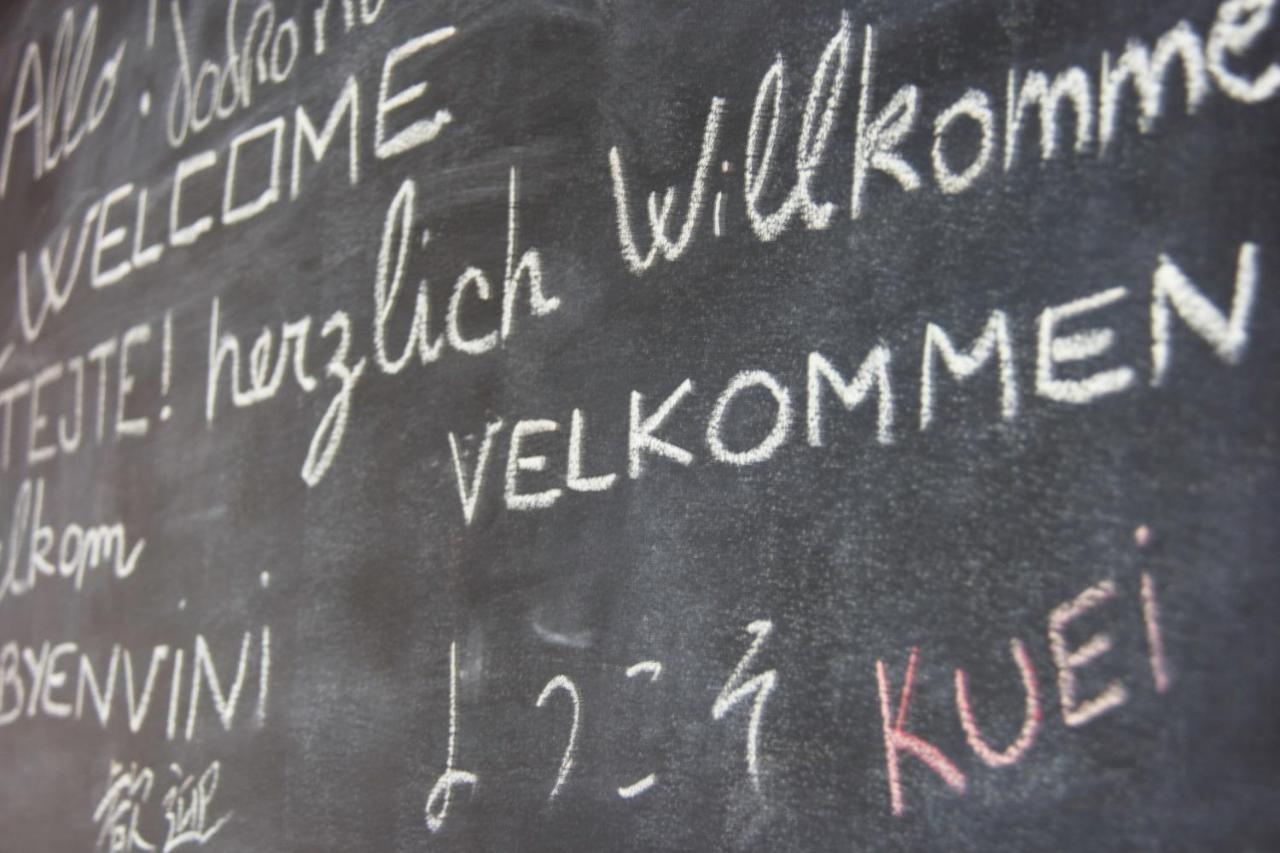 Allo!
WELCOME
TEJTE! herzlich Willkomme
VELKOMMEN
lkom
BYENVINI
ようこそ KUEi
歡迎